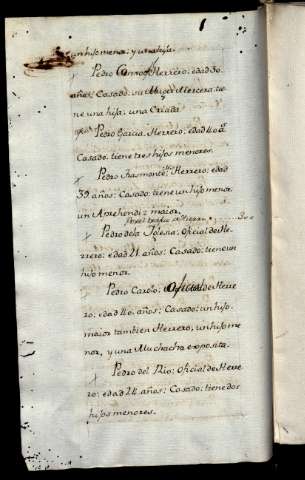 un hijo menor; y una hija.
Pedro Herrero: edad 30
años: Casado: su Muger Mercera tie
ne una hija: una Criada.
Pedro Garcia Herrero: edad 40 as
Casado tiene tres hijos menores.
Pedro Herrero: edad
39 años: Casado: tiene un hijo menor
un Aprehendiz maior,
Pedro de la Yglesia: Oficial de He
rrero: edad 21 años: Casado: tiene un
hijo menor.
Pedro Carolo: Oficial de Herre
ro: edad 40 años; Casado: un hijo
maior tambien Herrero, un hijo me
nor, y una Muchacha exposita.
Pedro del Rio: Oficial de Herre
ro: edad 24 años: Casado: tiene dos
hijos menores.